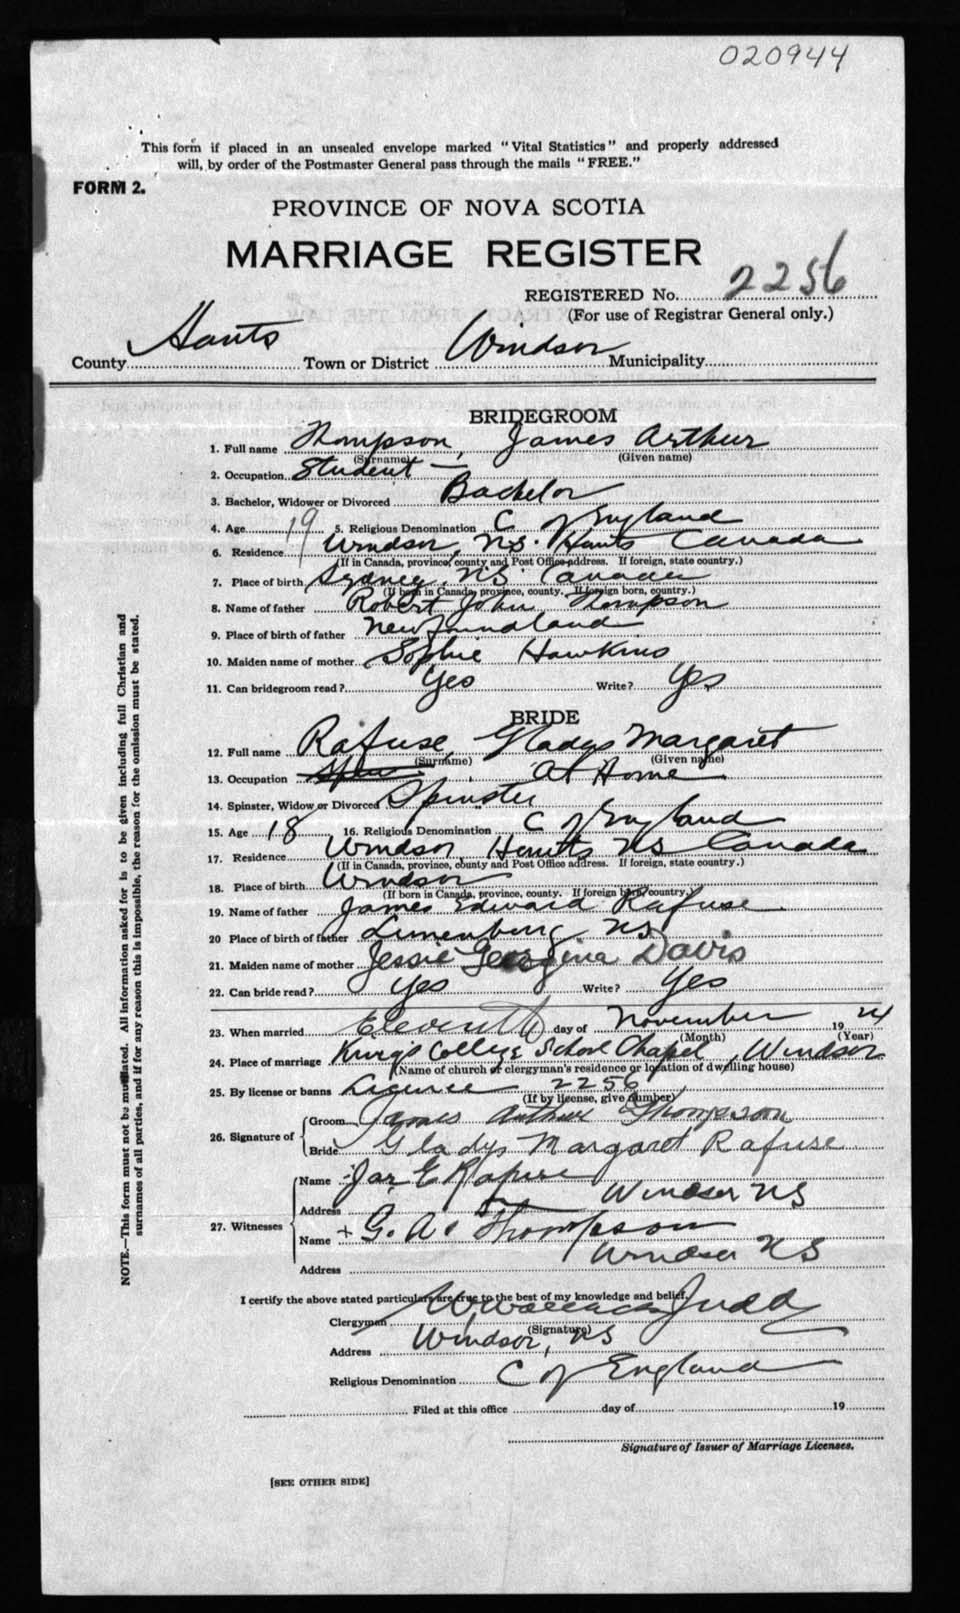 020944
This form if placed in an unsealed envelope marked "Vital Statistics" and properly addressed
will, by order of the Postmaster General pass through the mails "FREE."
FORM 2.
PROVINCE OF NOVA SCOTIA
MARRIAGE REGISTER
REGISTERED No. 2256
(For use of Registrar General only.)
County Hants Town or District Windsor Municipality
BRIDEGROOM
1. Full name Thompson, James Arthur
(Surname) (Given name)
2. Occupation Student —
3. Bachelor, Widower or Divorced Bachelor
4. Age 19 5. Religious Denomination C of England
6. Residence Windsor, N.S. Hants Canada
(If in Canada, province, county and Post Office address. If foreign, state country.)
7. Place of birth Sydney, N.S. Canada
(If born in Canada, province, county. If foreign born, country.)
8. Name of father Robert John Thompson
9. Place of birth of father Newfoundland
10. Maiden name of mother Sophie Hawkins
11. Can bridegroom read? Yes Write? Yes
BRIDE
12. Full name Rafuse, Gladys Margaret
(Surname) (Given name)
13. Occupation At Home
14. Spinster, Widow or Divorced Spinster
15. Age 18 16. Religious Denomination C of England
17. Residence Windsor, Hants NS Canada
(If in Canada, province, county and Post Office address. If foreign, state country.)
18. Place of birth Windsor
(If born in Canada, province, county. If foreign born, country.)
19. Name of father James Edward Rafuse
20 Place of birth of father Lunenburg NS
21. Maiden name of mother Jessie Georgina Davis
22. Can bride read? Yes Write? Yes
23. When married Eleventh day of November 19 24
(Month) (Year)
24. Place of marriage King's College School Chapel, Windsor
(Name of church or clergyman's residence or location of dwelling house)
25. By license or banns License 2256
(If by license, give number)
26. Signature of Groom James Arthur Thompson
Bride Gladys Margaret Rafuse
27. Witnesses Name Jas. E Rafuse
Address Windsor NS
Name + G. A. Thompson
Address Windsor NS
I certify the above stated particulars are true to the best of my knowledge and belief,
Clergyman W. Wallace Judd
(Signature)
Address Windsor, NS
Religious Denomination C of England
Filed at this office day of 19
Signature of Issuer of Marriage Licenses.
[SEE OTHER SIDE]
NOTE.—This form must not be mutilated. All information asked for is to be given including full Christian and
surnames of all parties, and if for any reason this is impossible, the reason for the omission must be stated.